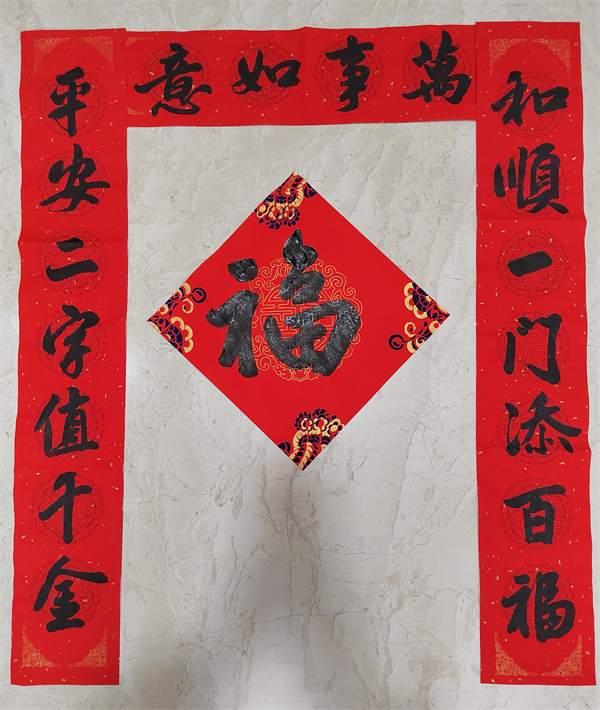 萬事如意
和順一门添百福
平安二字值千金
福